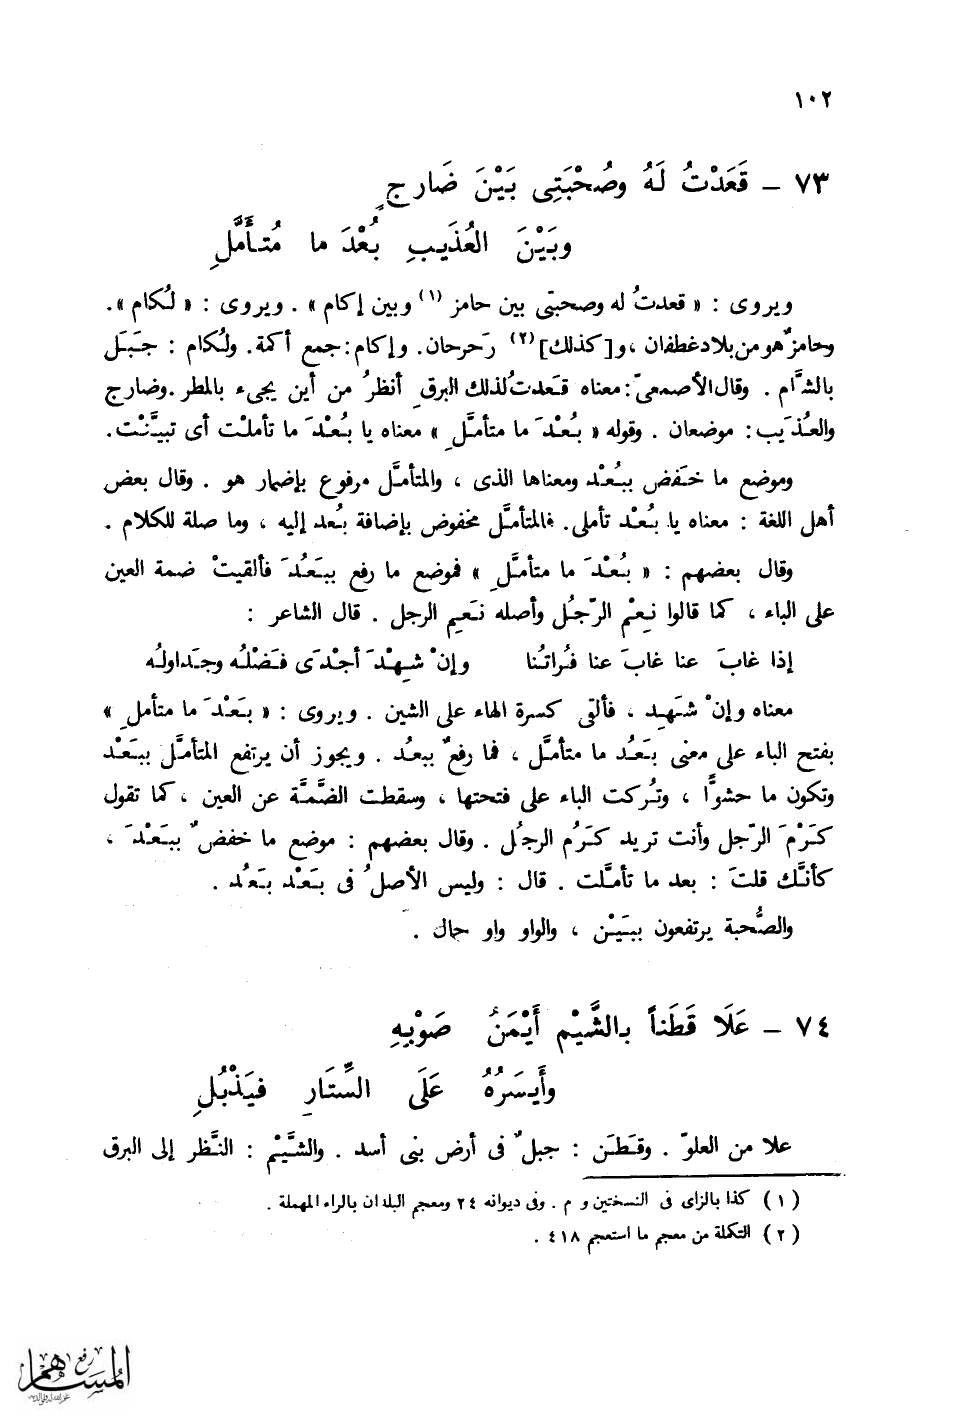 ١٠٢
٧٣ – قَعَدْتُ لَهُ وصُحْبَتِى بَيْنَ ضَارِجٍ
وبَيْنَ العُذَيبِ بُعْدَ ما مُتأَمَّلِ
ويروى : « قعدتُ له وصحبتى بين حامز (١) وبين إكام » . ويروى : « لُكام ».
وحامزٌ هو من بلاد غطفان ، و[كذلك] (٢) رَحرحان. وإكام: جمع أكمة. ولُكام : جَبَل
بالشَّام . وقال الأصمعىّ: معناه قعَدتُ لذلك البرقِ أنظرُ من أين يجىء بالمطر. وضارج
والعُذَيب: موضعان . وقوله « بُعْدَ ما متأمَّلِ » معناه يا بُعْدَ ما تأملْت أى تبيَّنْت.
وموضع ما خَفض ببُعْد ومعناها الذى ، والمتأمَّل مرفوع بإضمار هو . وقال بعض
أهل اللغة : معناه يا بُعْد تأملى. فالمتأمَّل مخفوض بإضافة بُعد إليه ، وما صلة للكلام .
وقال بعضهم : « بُعْدَ ما متأمَّلِ » فموضع ما رفع ببَعُدَ فألقيتْ ضمة العين
على الباء ، كما قالوا نِعْم الرّجُل وأصله نَعِم الرجل . قال الشاعر :
إذا غابَ عنا غابَ عنا فُراتُنا وإنْ شِهْدَ أجْدَى فَضْلُه وجَداولُه
معناه وإنْ شَهِد ، فألقى كسرة الهاء على الشين . ويروى : « بَعْدَ ما متأملِ »
بفتح الباء على معنى بَعُد ما متأمَّل ، فما رفعٌ ببعُد . ويجوز أن يرتفع المتأمَّل ببَعْد
وتكون ما حشوًّا ، وتُركت الباء على فتحتها ، وسقطت الضَّمَّة عن العين ، كما تقول
كَرْمَ الرّجل وأنت تريد كَرُم الرجُل . وقال بعضهم : موضع ما خفضٌ ببَعْدَ ،
كأنَّك قلتَ : بعد ما تأمَّلت . قال : وليس الأصلُ فى بَعْد بَعُد .
والصُّحبة يرتفعون ببَيْن ، والواو واو حال .
٧٤ – عَلَا قَطَناً بالشَّيْمِ أَيْمَنُ صَوْبِهِ
وأَيسَرُهُ عَلَى السِّتَارِ فيَذْبُلِ
علا من العلوّ . وقَطَن : جبلٌ فى أرض بنى أسد . والشَّيْم : النَّظر إلى البرق
(١) كذا بالزاى فى النسختين و م . وفى ديوانه ٢٤ ومعجم البلدان بالراء المهملة .
(٢) التكملة من معجم ما استعجم ٤١٨ .